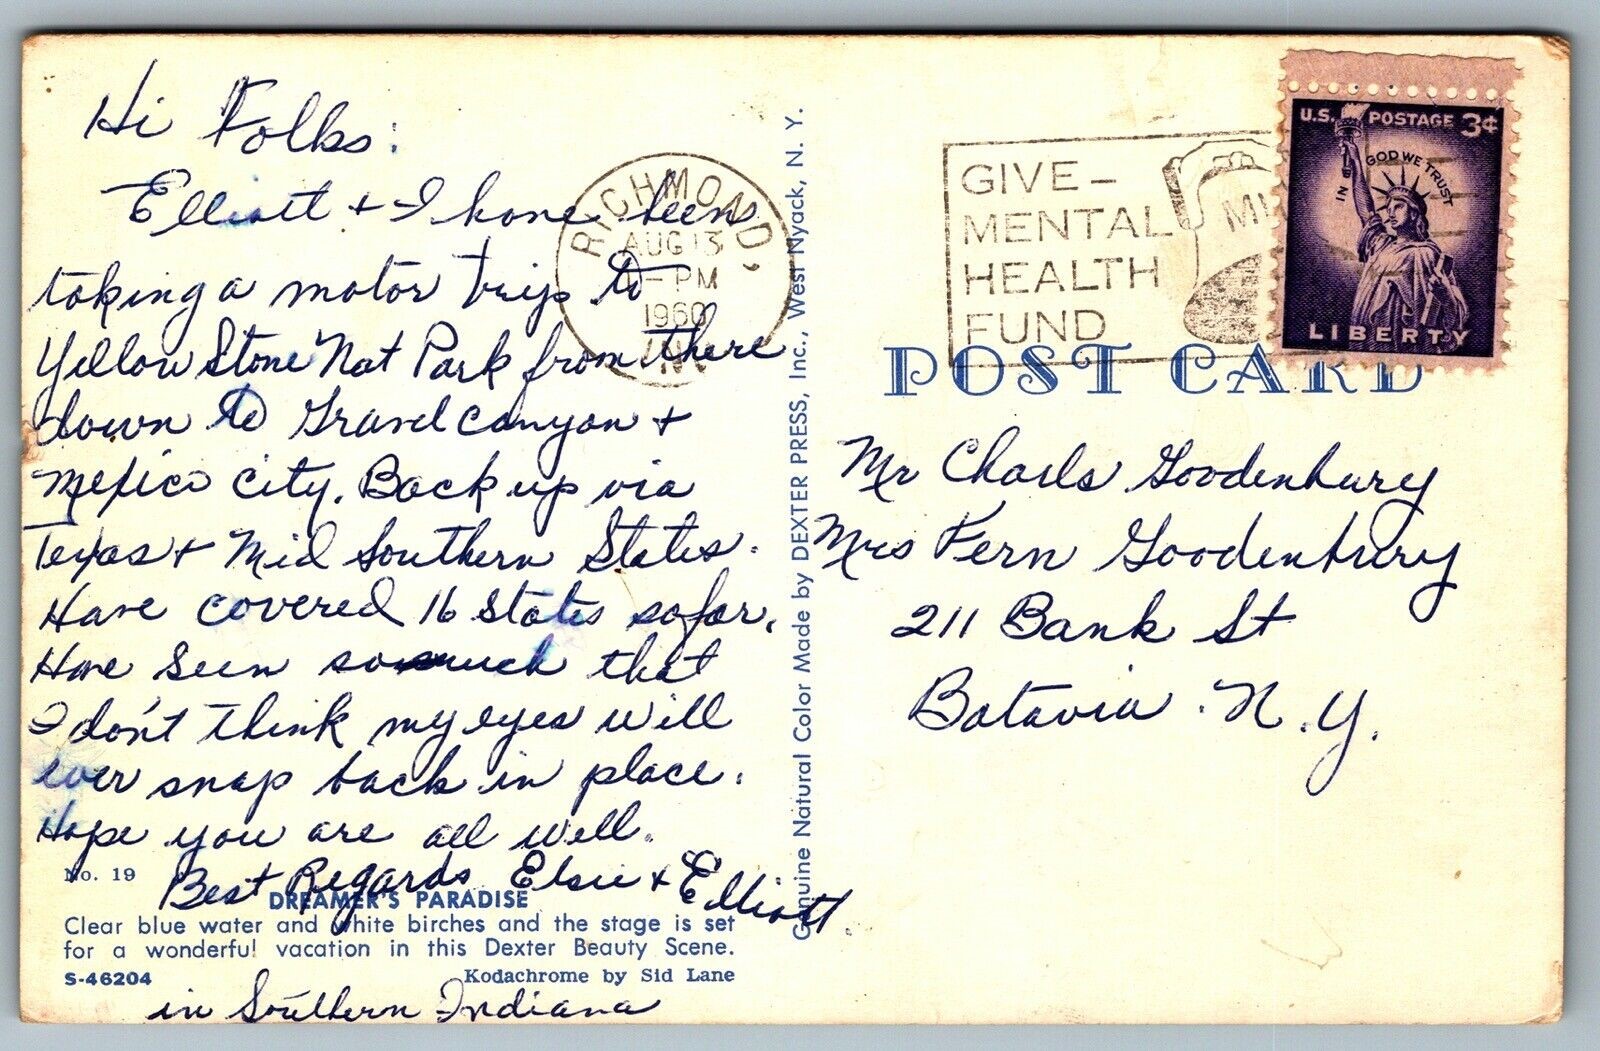 Hi Folks:
Elliott + I have been
taking a motor trip to
Yellow Stone Nat Park from there
down to Grand Canyon +
Mexico City. Back up via
Texas + Mid Southern States.
Have covered 16 States so far.
Have seen so much that
I don't think my eyes will
ever snap back in place.
Hope you are all well.
Best Regards Elsie + Elliott.
in Southern Indiana
No. 19
DREAMER'S PARADISE
Clear blue water and white birches and the stage is set
for a wonderful vacation in this Dexter Beauty Scene.
S-46204 Kodachrome by Sid Lane
Genuine Natural Color Made by DEXTER PRESS, Inc., West Nyack, N. Y.
RICHMOND,
AUG 13
PM
1960
IND
GIVE–
MENTAL
HEALTH
FUND
U.S. POSTAGE 3¢
IN GOD WE TRUST
LIBERTY
POST CARD
Mr Charls Goodenbury
Mrs Fern Goodenbury
211 Bank St
Batavia . N.Y.